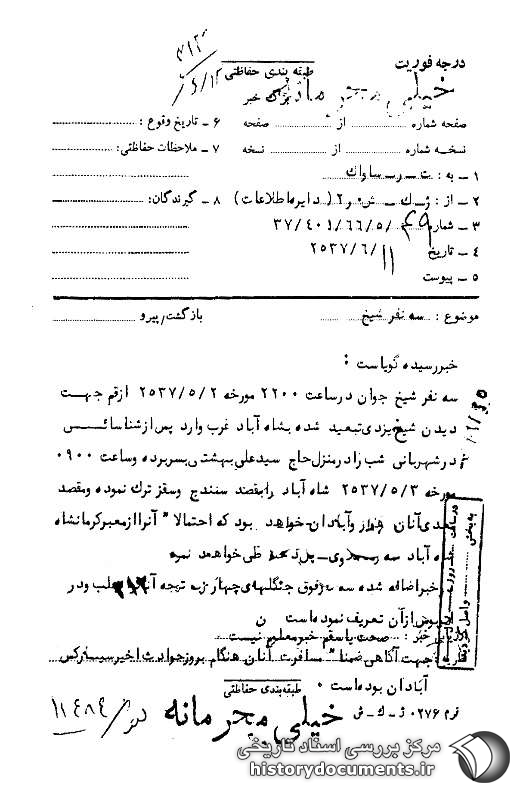 ۳۱۲
۶/۱۲
درجه فوریت
طبقه بندی حفاظتی
خیلی محرمانه
برگ خبر
صفحه شماره از صفحه
۶ ـ تاریخ وقوع :
نسخه شماره از نسخه
۷ ـ ملاحظات حفاظتی:
۱ ـ به : ت ـ ر ـ ساواک
۲ ـ از : ژ ـ ک ـ ش ۲ (دایره اطلاعات)
۸ ـ گیرندگان:
۳ ـ شماره ۳۷/۴۰۱/۶۶/۵/۴۹
۴ ـ تاریخ ۲۵۳۷/۶/۱۱
۵ ـ پیوست
موضوع : سه نفر شیخ
بازگشت/پیرو
خبر رسیده گویاست :
سه نفر شیخ جوان در ساعت ۲۲۰۰ مورخه ۲۵۳۷/۵/۲ از قم جهت
دیدن شیخ یزدی تبعید شده بشاه آباد غرب وارد پس از شناسائی
در شهربانی شب را در منزل حاج سید علی بهشتی بسر برده و ساعت ۰۹۰۰
مورخه ۲۵۳۷/۵/۳ شاه آباد را بقصد سنندج و سقز ترک نموده و مقصد
بعدی آنان اهواز و آبادان خواهد بود که احتمالا" آنرا از معبر کرمانشاه
شاه آباد طی خواهند نمود
خبر اضافه شده سه نفر فوق جنگلهای
از آن تعریف نموده است
خبر : صحت یا سقم خبر معلوم نیست
جهت آگاهی ضمنا" مسافرت آنان هنگام بروز حوادث اخیر سینما رکس
آبادان بوده است ۰
طبقه بندی حفاظتی
خیلی محرمانه
فرم ۰۲۷۶ ژ ـ ک ـ ش
۱۱۴۸۴
مرکز بررسی اسناد تاریخی
historydocuments.ir